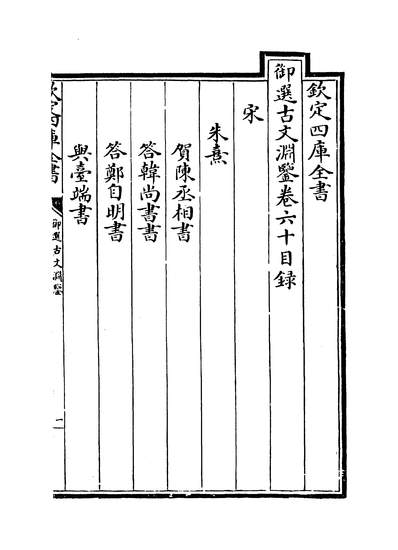 欽定四庫全書
御選古文淵鑒卷六十目録
宋
朱熹
賀陳丞相書
答韓尚書書
答鄭自明書
與臺端書
欽定四庫全書
御選古文淵鑒